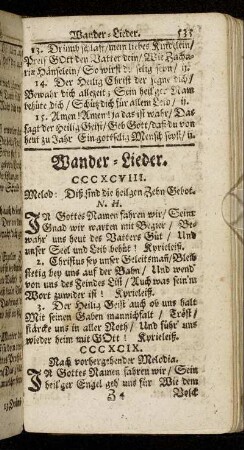 Wander-Lieder. 535
13. Drümb schlaff/ mein liebes Kindelein/
Preiß GOtt den Vatter dein/ Wie Zacha-
riæ Hänselein/ So wirst du selig seyn/ ij.
14. Der Heilig Christ der segne dich/
Bewahr dich allezeit; Sein heil'ger Nam
behüte dich/ Schütz dich für allem Leid/ ij.
15. Amen! Amen! ja das ist wahr/ Das
sagt der Heilig Geist/ Geb Gott/ daß du von
heut zu Jahr Ein gottselig Mensch seyst/ ij.
Wander-Lieder.
CCCXCVIII.
Melod: Diß sind die heilgen Zehn Gebot.
N. H.
IN Gottes Namen fahren wir/ Seiner
Gnad wir warten mit Begier/ Be-
wahr' uns heut des Vatters Gut/ Und
unser Seel und Leib behüt! Kyrieleiß.
2. Christus sey unser Geleitsmañ/ Bleib
stetig bey uns auf der Bahn/ Und wend'
von uns des Feindes List/ Auch was sein'm
Wort zuwider ist! Kyrieleiß.
3. Der Heilig Geist auch ob uns halt'
Mit seinen Gaben mannichfalt/ Tröst/
stärcke uns in aller Noth/ Und führ' uns
wieder heim mit GOtt! Kyrieleiß.
CCCXCIX.
Nach vorhergehender Melodia.
IN Gottes Namen fahren wir/ Sein
heil'ger Engel geh uns für Wie dem
Z 4 Volck